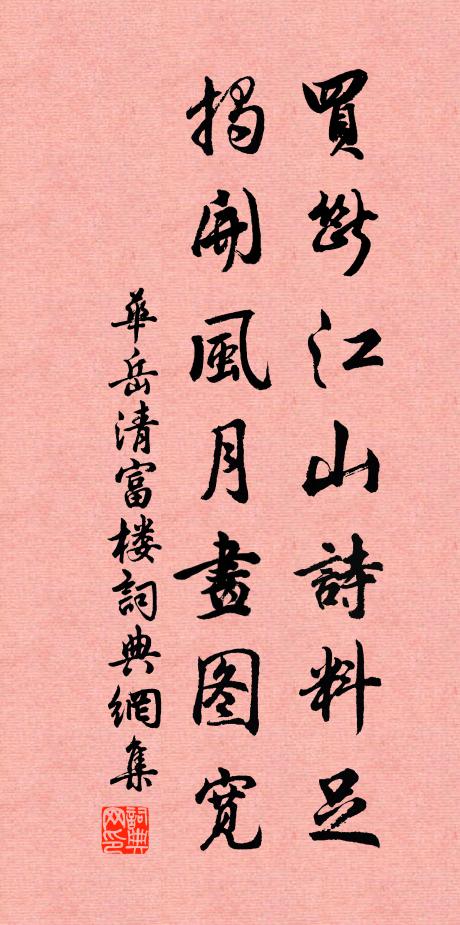 買斷江山詩料足
揭開風月畫图寬
華岳清富楼詞典網集
詞典网印